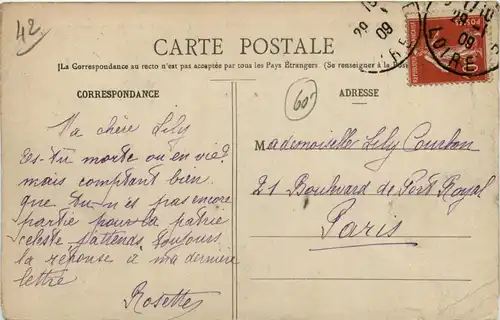 42
CARTE POSTALE
[La Correspondance au recto n'est pas acceptée par tous les Pays Étrangers. (Se renseigner à la Poste
CORRESPONDANCE
Ma chère Lily
Es-tu morte ou en vie?
mais comptant bien
que tu n'es pas encore
partie pour la patrie
celeste j'attends toujours
la réponse à ma dernière
lettre
Rosette
60
ADRESSE
Mademoiselle Lily Courbon
21 Boulevard de Port Royal
Paris
29
09
LOIRE
29
09
LOIRE